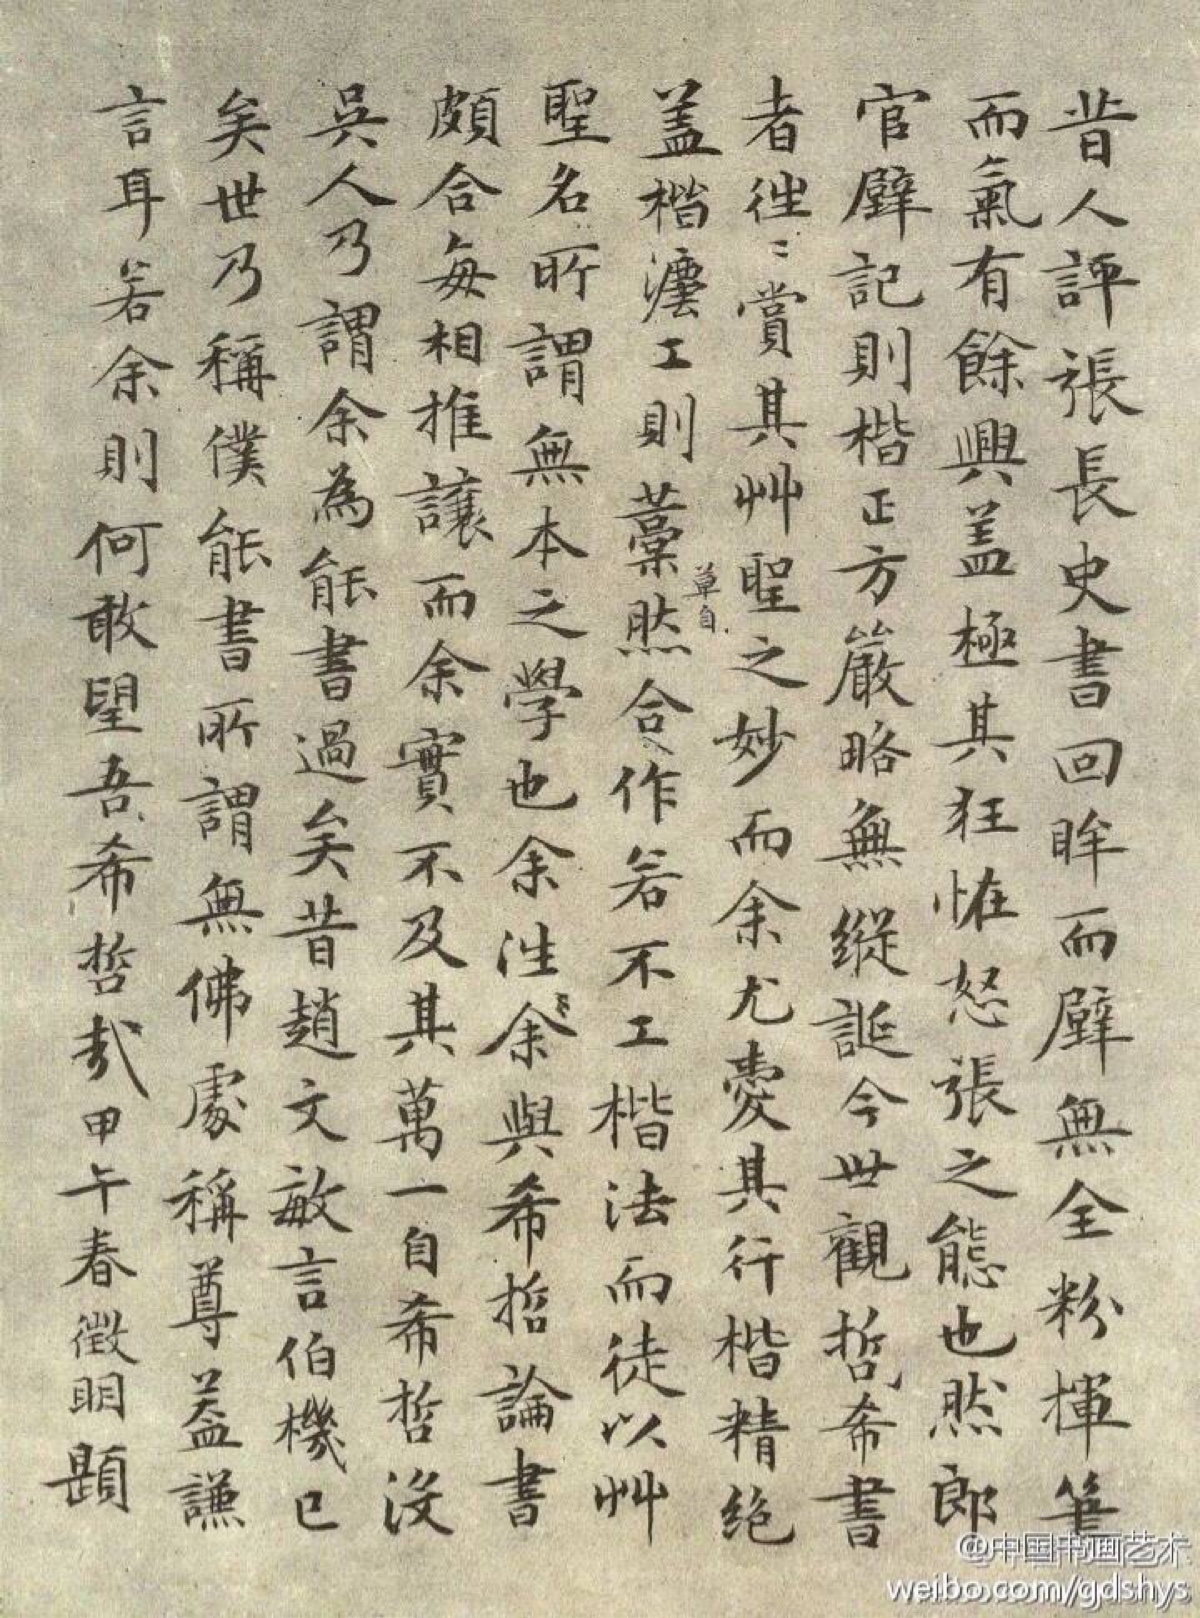 昔人評張長史書回眸而壁無全粉揮筆
而氣有餘興盖極其狂恠怒張之態也然郎
官壁記則楷正方嚴略無縱誕今世觀哲希書
者徃〻賞其艸聖之妙而余尤愛其行楷精絶
盖楷灋工則藁草自然合作若不工楷法而徒以艸
聖名所謂無本之學也余徃余與希哲論書
頗合每相推讓而余實不及其萬一自希哲没
吳人乃謂余為能書過矣昔趙文敏言伯機已
矣世乃稱僕能書所謂無佛處稱尊盖謙
言耳若余則何敢望吾希哲哉甲午春徵明題
@中国书画艺术
weibo.com/gdshys